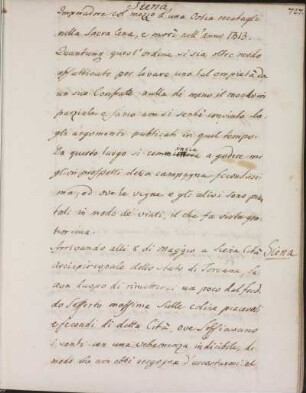 Siena
727
Imperadore col mezzo d'una Ostia recatagli
nella Sacra Cena, e morì nell'anno 1313.
Quantunq quest'ordine si sia oltre modo
affaticato per lavare una tal empietà da
un suo Confratte nulla di meno il mondo im
parziale e savio non si sente convinto da
gli argomenti publicati in quel tempo.
Da questo luogo si comincia a godere mi
glior prospetti della campagna
ma, ed ove le vigne e gli alivi sono pian
tati in modo de' viali, il che fa vista pit
toresca.
Arrivando alli 8 di Maggio a Siena Città Siena
Arcivescopale dello Stato di Toscana, fu
con luogo di rimetterci un poco dal fred
do sofferto massime sulle colline
di detta Città, ove soffiavano
i venti con una vehemenza indicibile, di
modo che non ebbi vergogna d'accostarmi al